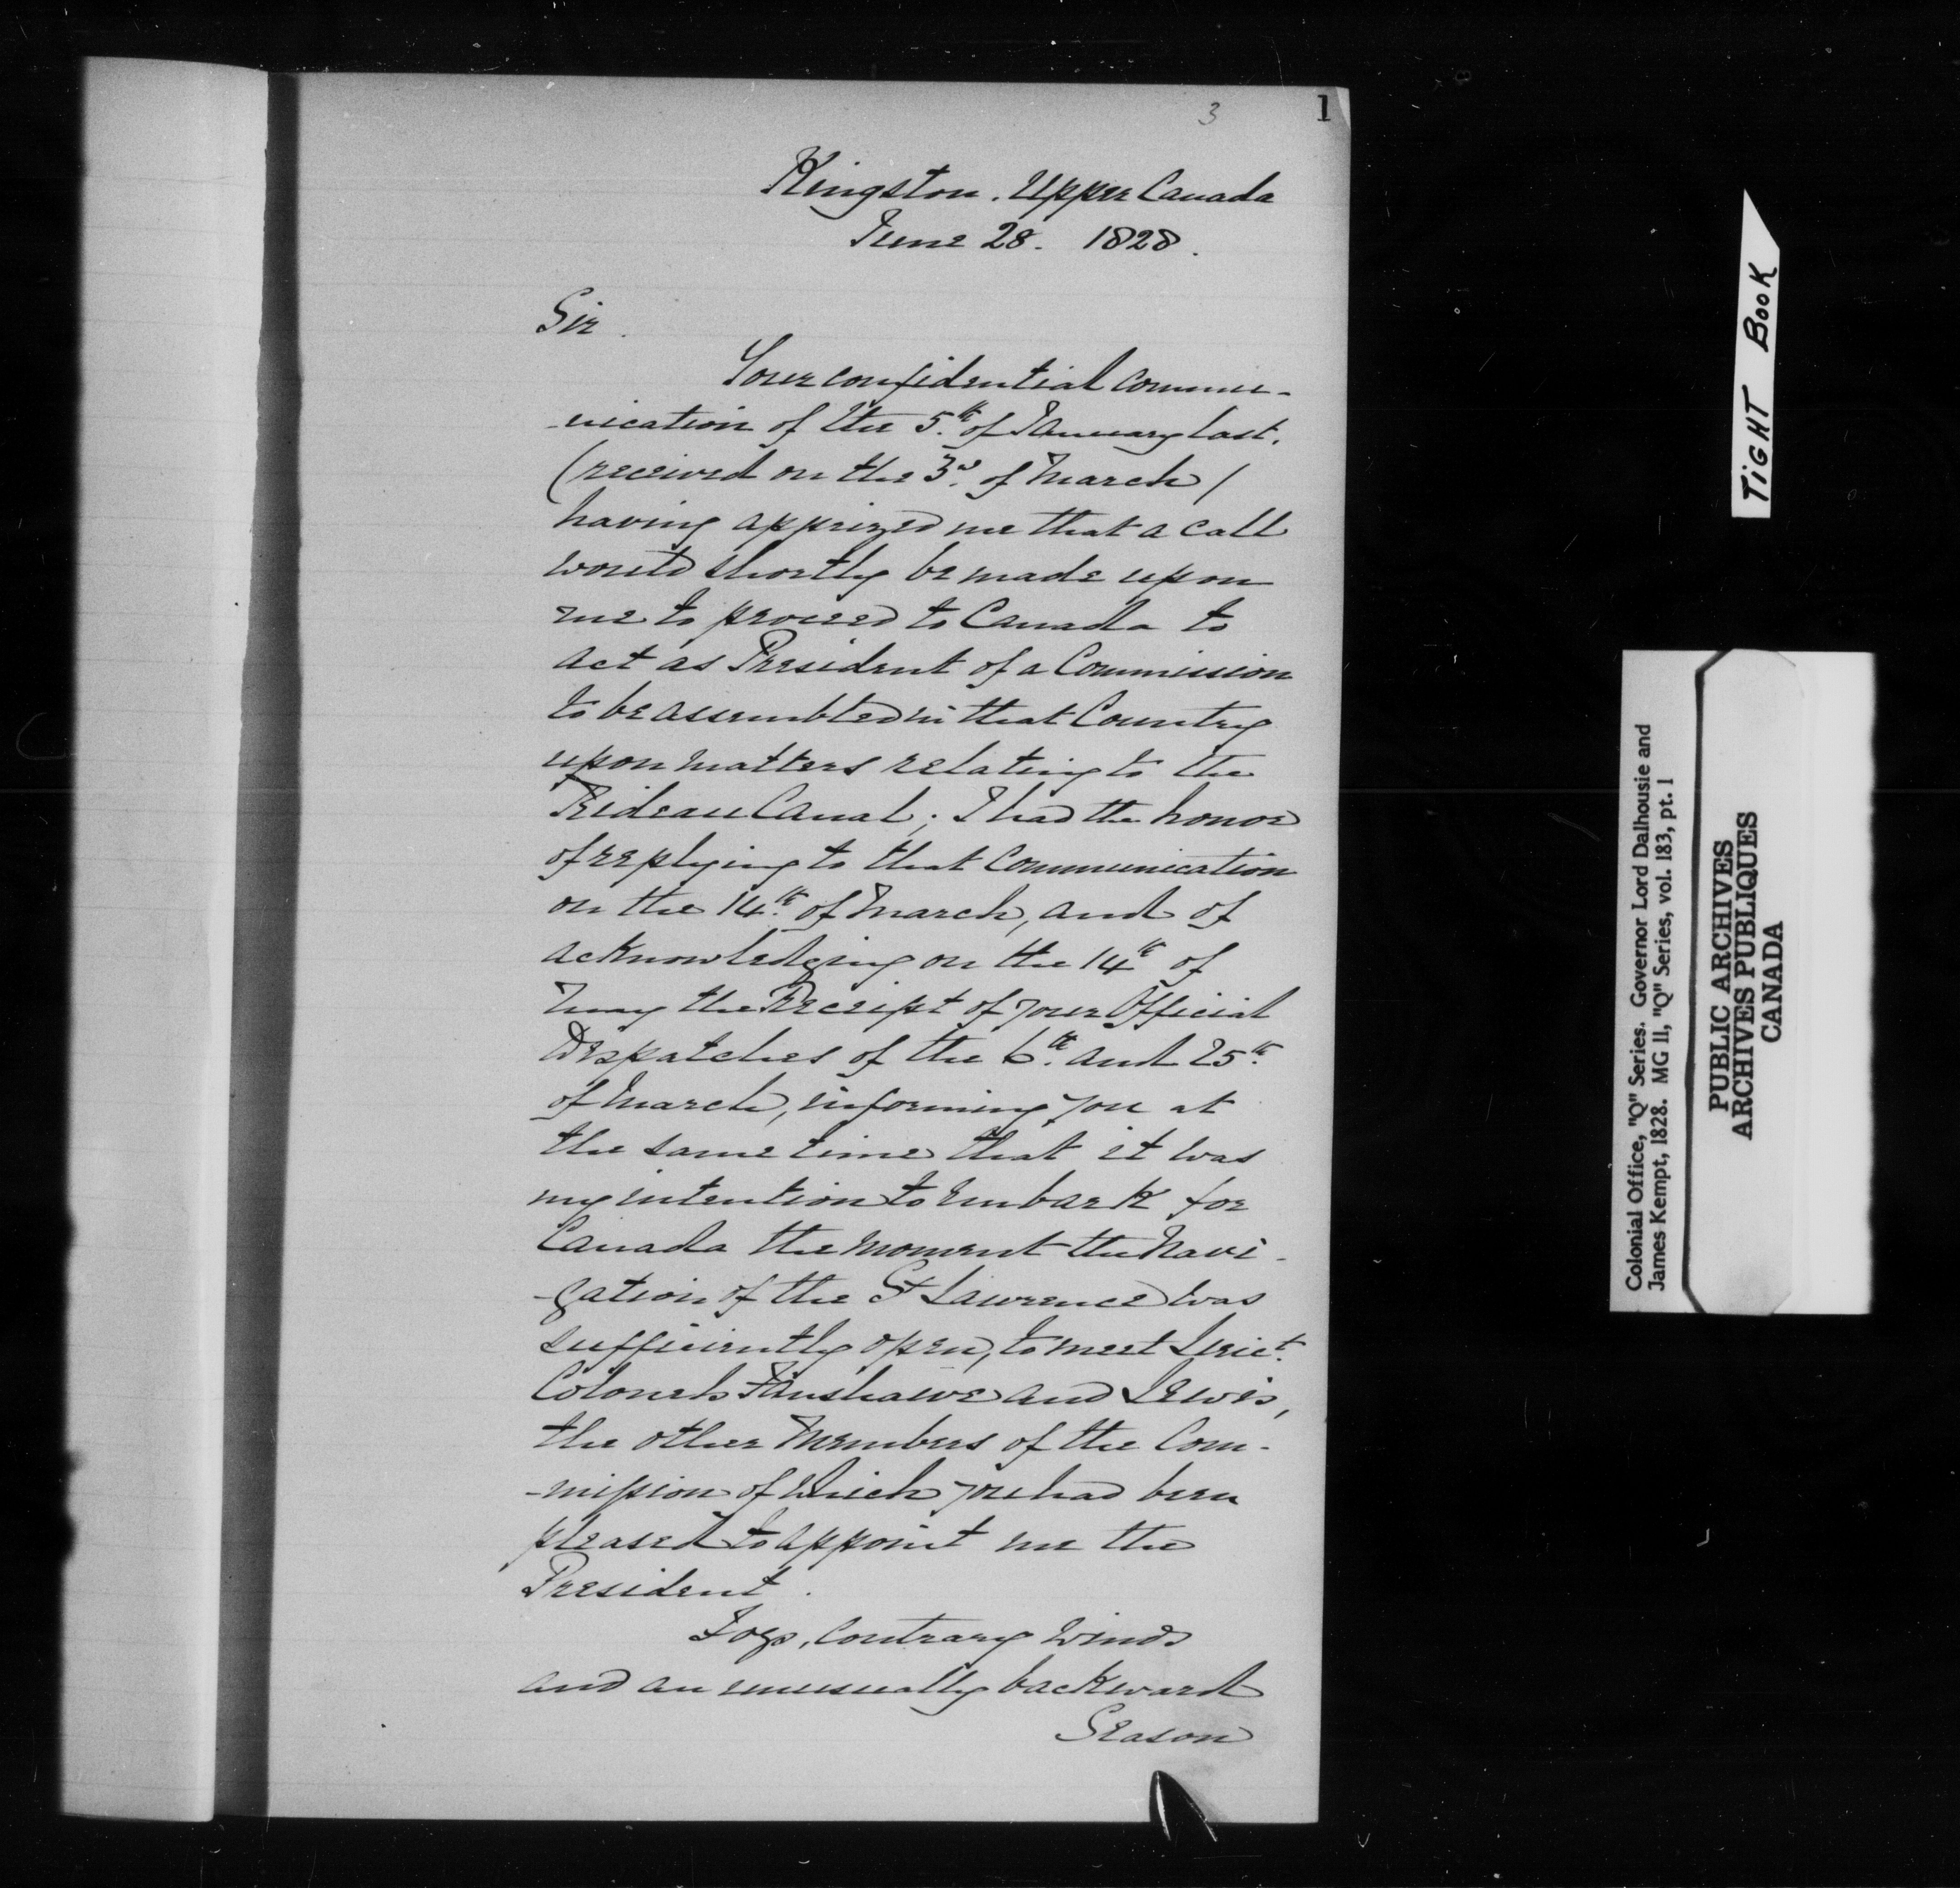 3
1
Kingston. Upper Canada
June 28. 1828.
Sir.
Your confidential commu-
-nication of the 5.th of January last.
(received on the 3.d of March /
having apprized me that a call
would shortly be made upon
me to proceed to Canada to
act as President of a Commission
to be assembled in that Country
upon matters relating to the
Rideau Canal; I had the honor
of replying to that Communication
on the 14.th of March, and of
acknowledging on the 14th of
May the Receipt of your Official
Dispatches of the 6.th and 25.th
of March, informing you at
the same time that it was
my intention to Embark for
Canada the moment the Navi-
-gation of the St Lawrence was
sufficiently open, to meet Lieut.
Colonels Fanshawe and Lewis,
the other Members of the Com-
-mission of which you had been
pleased to appoint me the
President.
Fogs, contrary Winds
and an unusually backward
Season
TIGHT BOOK
Colonial Office, "Q" Series. Governor Lord Dalhousie and
James Kempt, 1828. MG 11, "Q" Series, vol. 183, pt. 1
PUBLIC ARCHIVES
ARCHIVES PUBLIQUES
CANADA